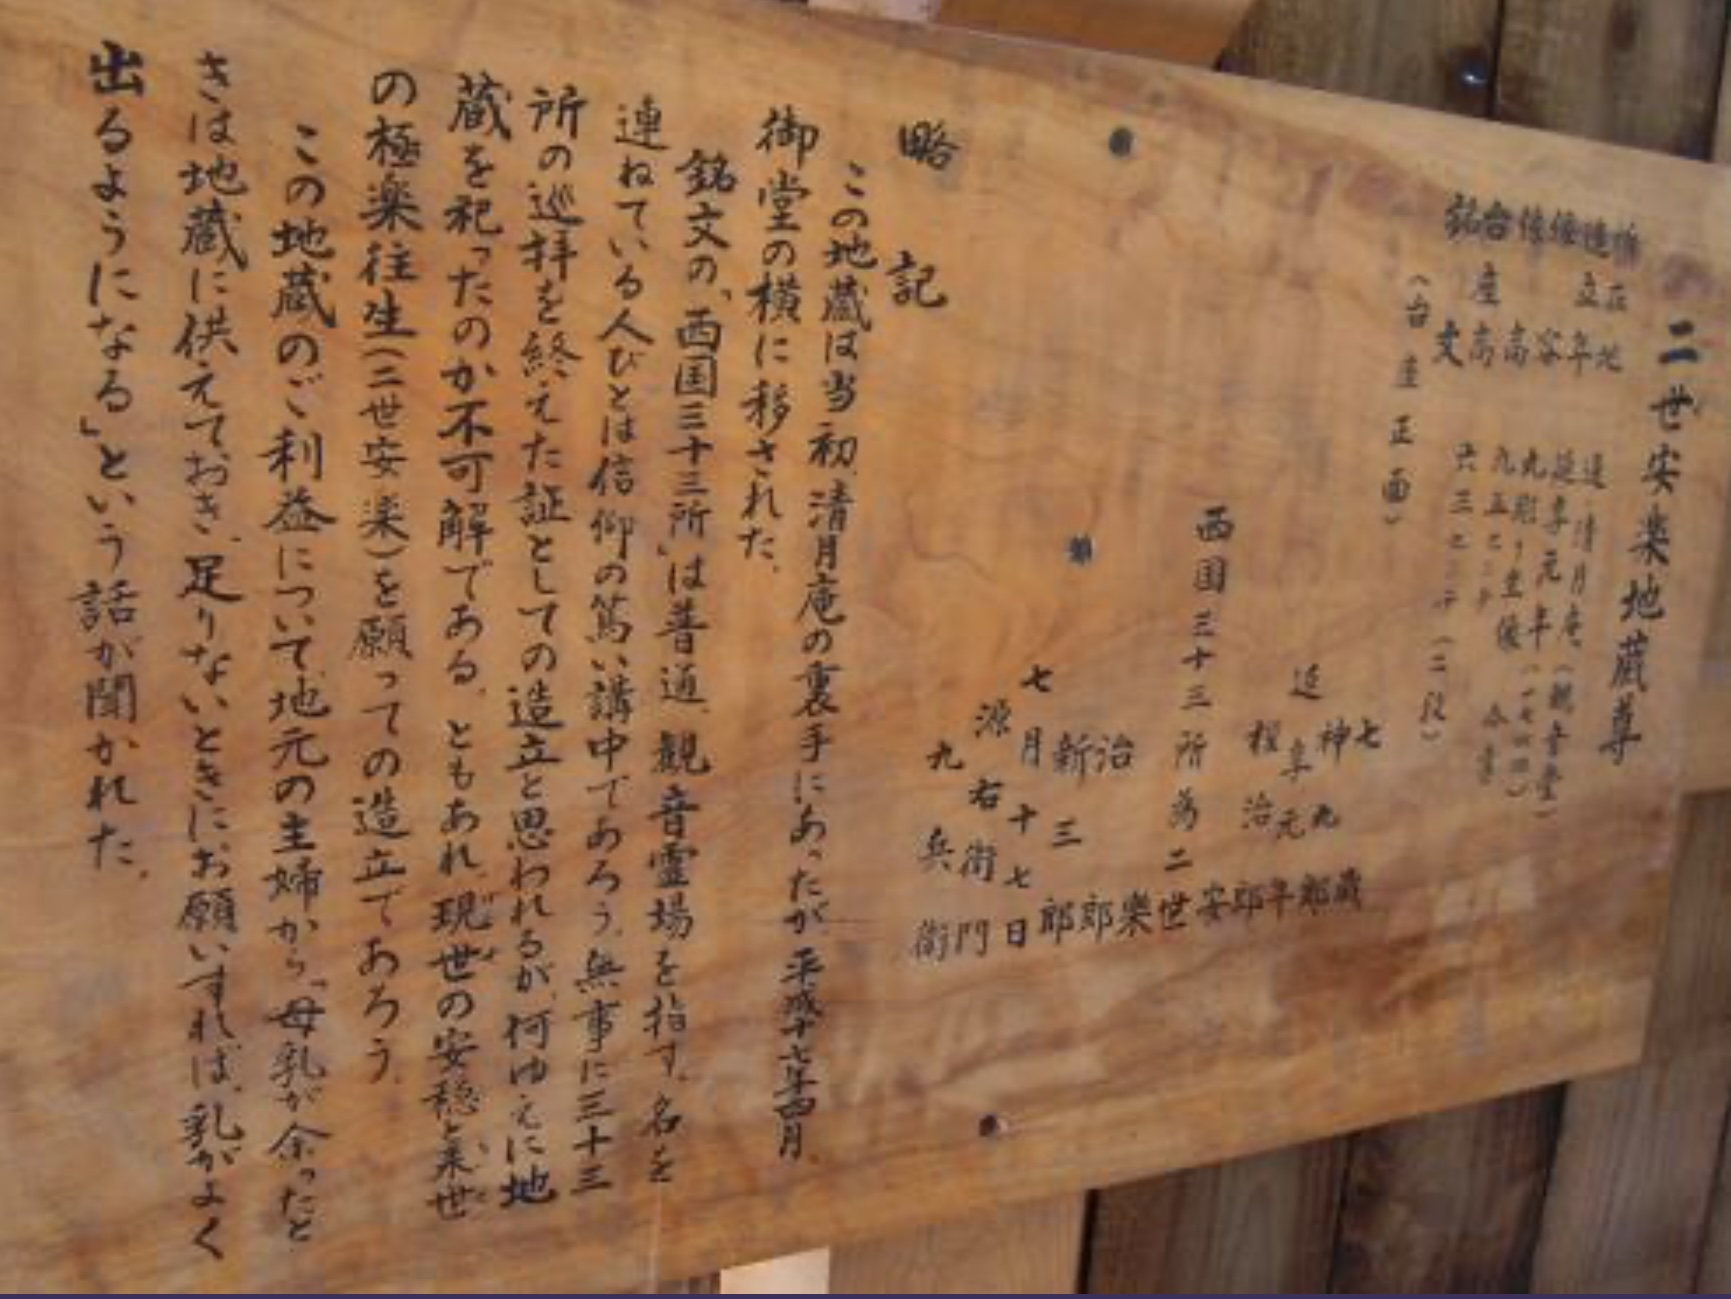 二世安楽地蔵尊
所在地 道清月庵(観音堂)
造立年 延享元年(一七四四)
像容 丸彫り坐像
像高 九五センチ
台座高 六三センチ(二段)
銘文
(台座正面)
七
神九郎
延享元年
程治郎
西国三十三所為二世安樂
治郎
新三郎
七月十七日
源右衛門
九兵衛
略記
この地蔵は当初、清月庵の裏手にあったが平成十七年四月、
御堂の横に移された。
銘文の「西国三十三所」は普通、観音霊場を指す。名を
連ねている人びとは信仰の篤い講中であろう。無事に三十三
所の巡拝を終えた証としての造立と思われるが、何ゆえに地
蔵を祀ったのか不可解である。ともあれ、現世の安穏と来世
の極楽往生(二世安楽)を願っての造立であろう。
この地蔵のご利益について、地元の主婦から、「母乳が余ったと
きは地蔵に供えておき、足りないときにお願いすれば、乳がよく
出るようになる」という話が聞かれた。